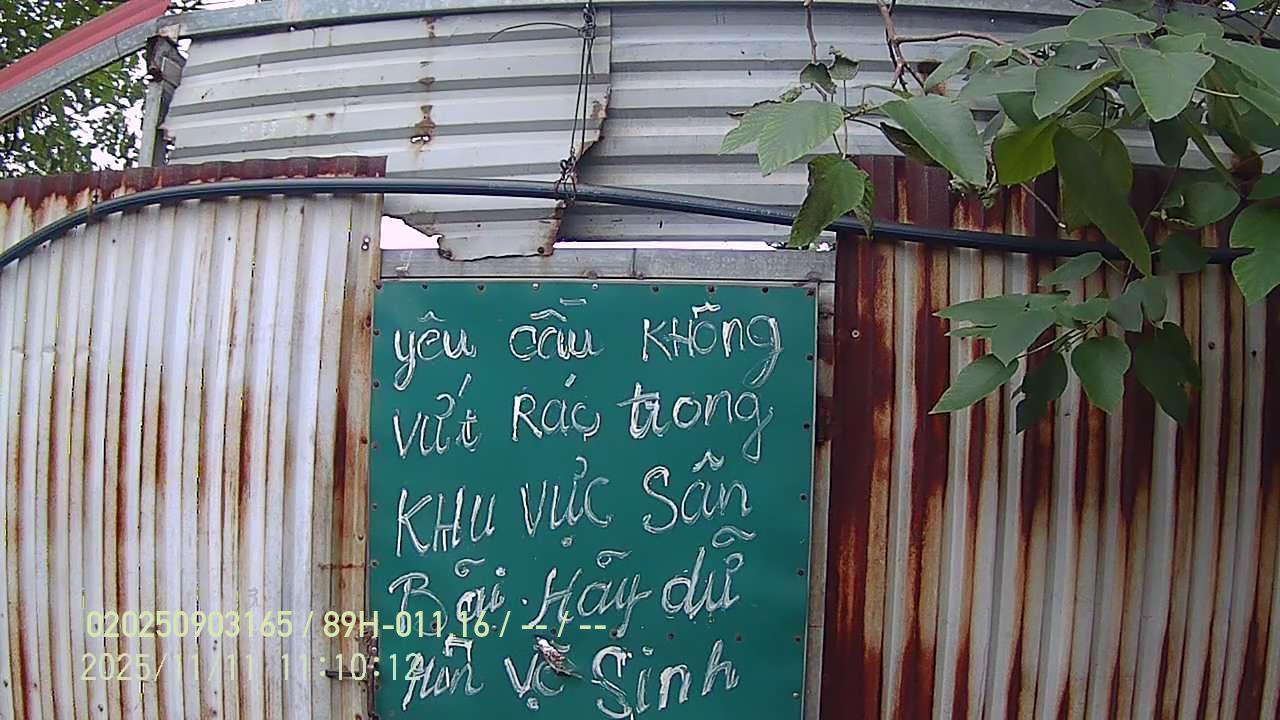 yêu cầu KHÔng
vứt Rác trong
KHU vực Sân
Bãi. Hãy dữ
Hìn vệ Sinh
020250903165 / 89H-011.16 / -- / --
2025/11/11 11:10:12